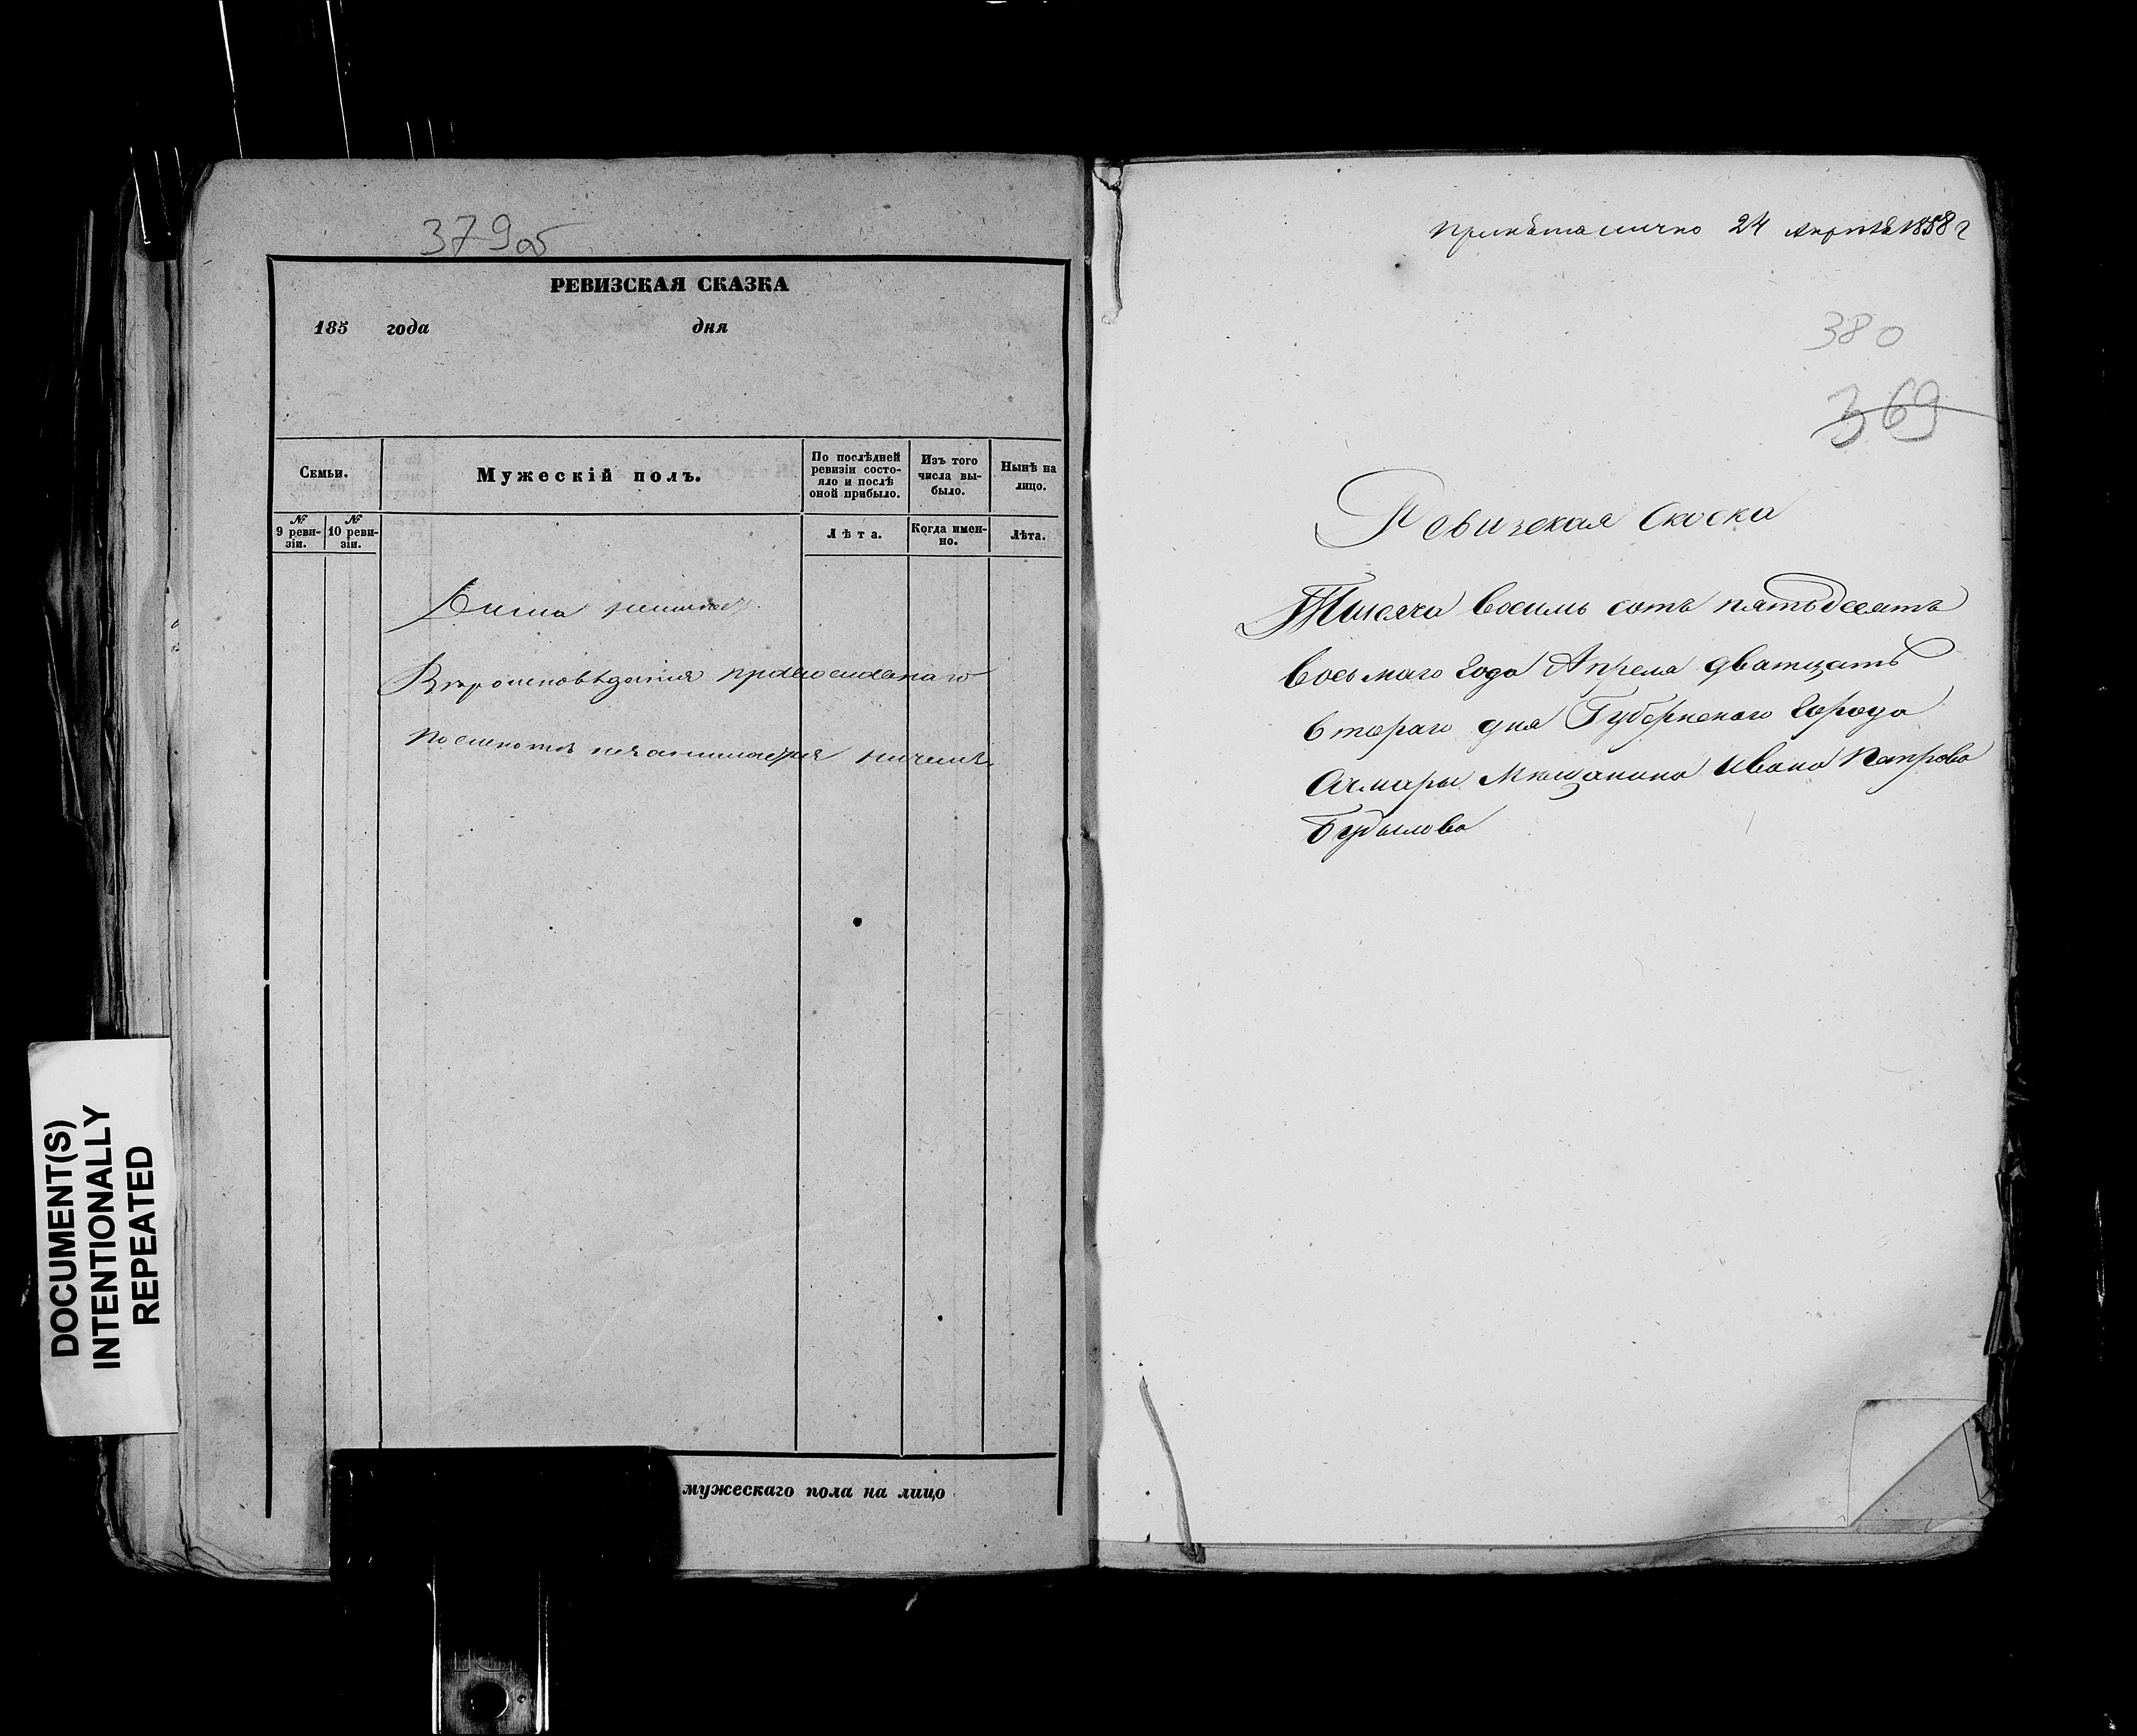 379об
РЕВИЗСКАЯ СКАЗКА
185 года дня
Семьи.
Мужескій полъ.
По послѣдней ревизіи состо-
яло и послѣ
оной прибыло.
Изъ того
числа вы-
было.
Нынѣ на
лицо.
№
9 реви-
зіи.
№
10 реви-
зіи.
Лѣта.
Когда имен-
но.
Лѣта.
Вѣроисповѣданія православнаго
ничемъ
мужескаго пола на лицо
DOCUMENT(S)
INTENTIONALLY
REPEATED
Принята лично 24 Апрѣля 1858 г
380
369
Ревизская Скоска
Тысяча восемь сотъ пятьдесятъ
восьмаго года Апреля дватцать
втораго дня Губернскаго города
Самары Мѣщанина Ивана Петрова